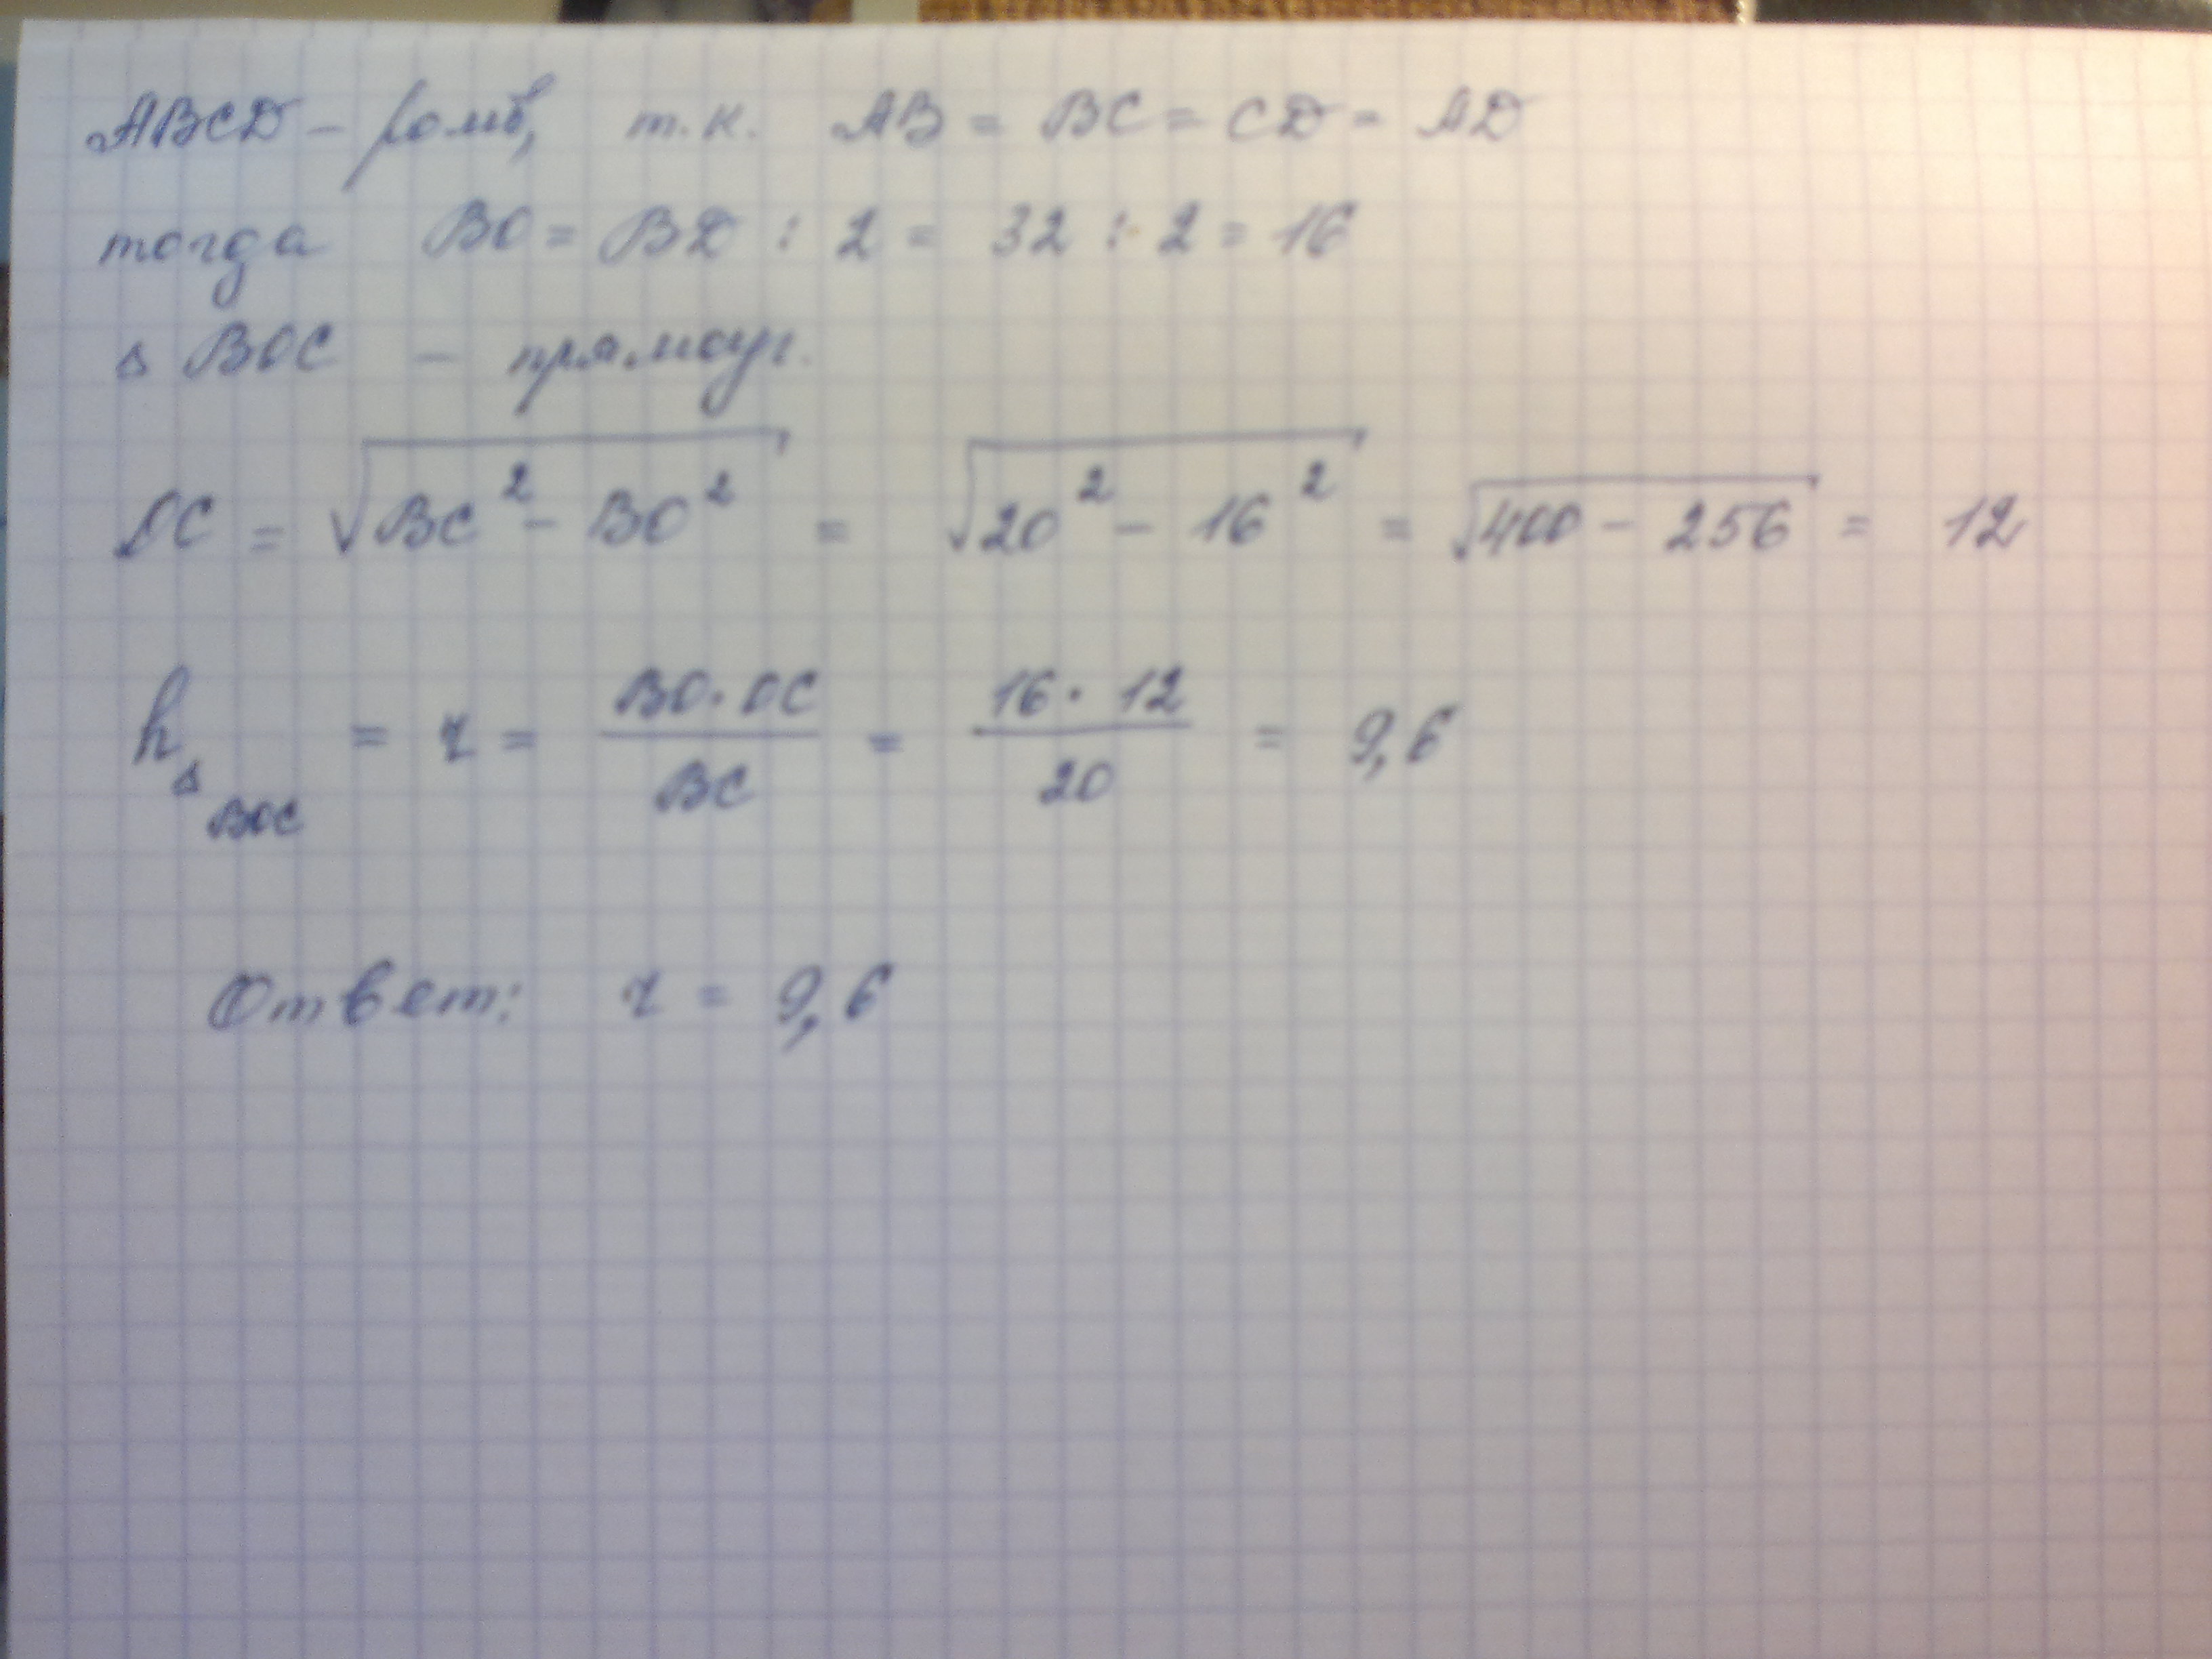 ABCD – ромб, т.к. AB = BC = CD = AD
тогда BO = BD : 2 = 32 : 2 = 16
△ BOC – прямоуг.
OC = √(BC² – BO²) = √(20² – 16²) = √(400 – 256) = 12
h△BOC = r = BO · OC / BC = 16 · 12 / 20 = 9,6
Ответ: r = 9,6